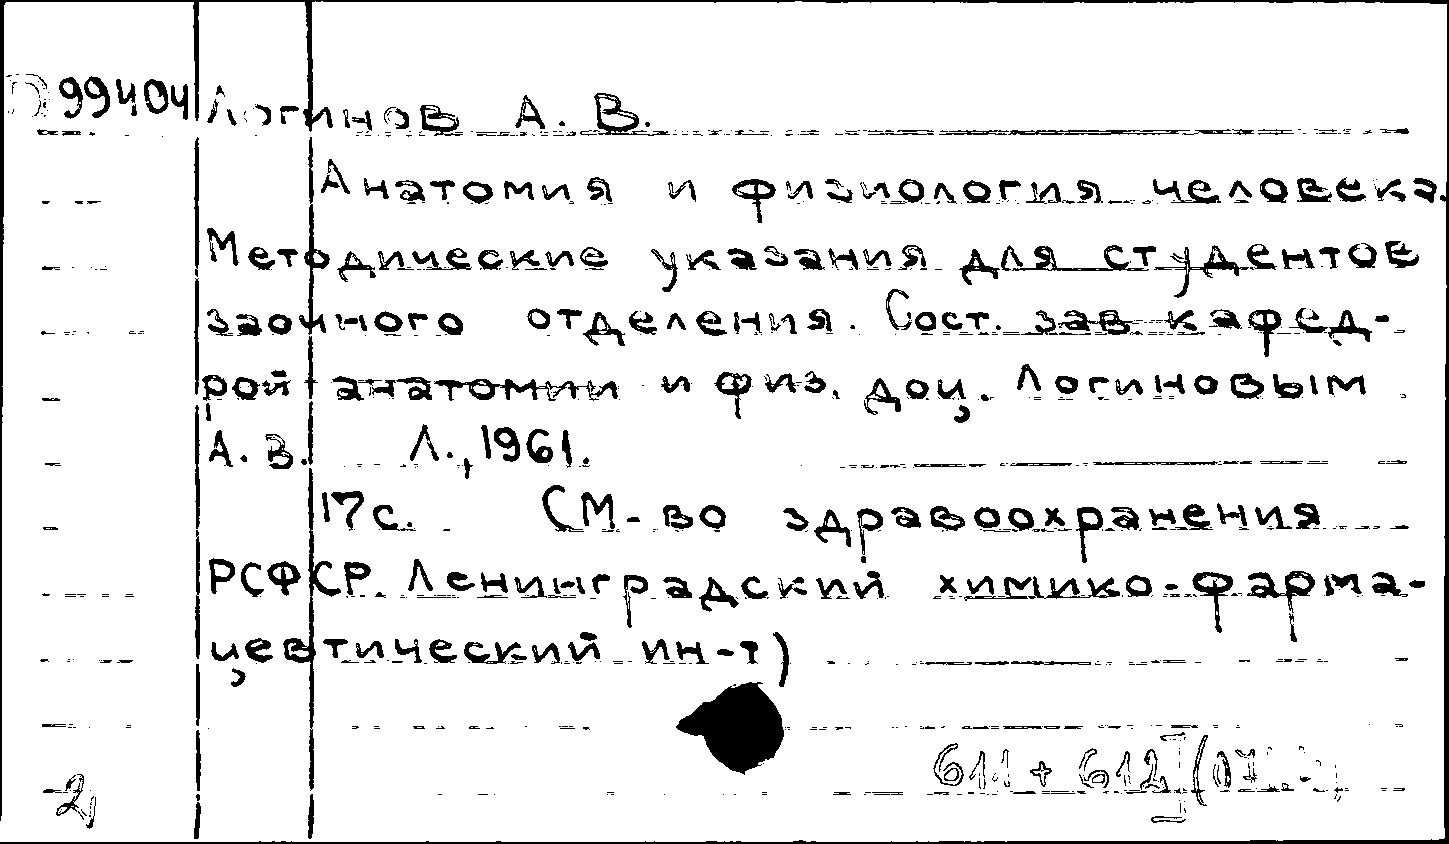 99404 Логинов А. В.
Анатомия и физиология человека.
Методические указания для студентов
заочного отделения. Сост. зав кафед-
рой анатомии и физ. доц. Логиновым
А. В. Л., 1961.
17с. (М-во здравоохранения
РСФСР. Ленинградский химико-фарма-
цевтический ин-т)
611 + 612] (07
2